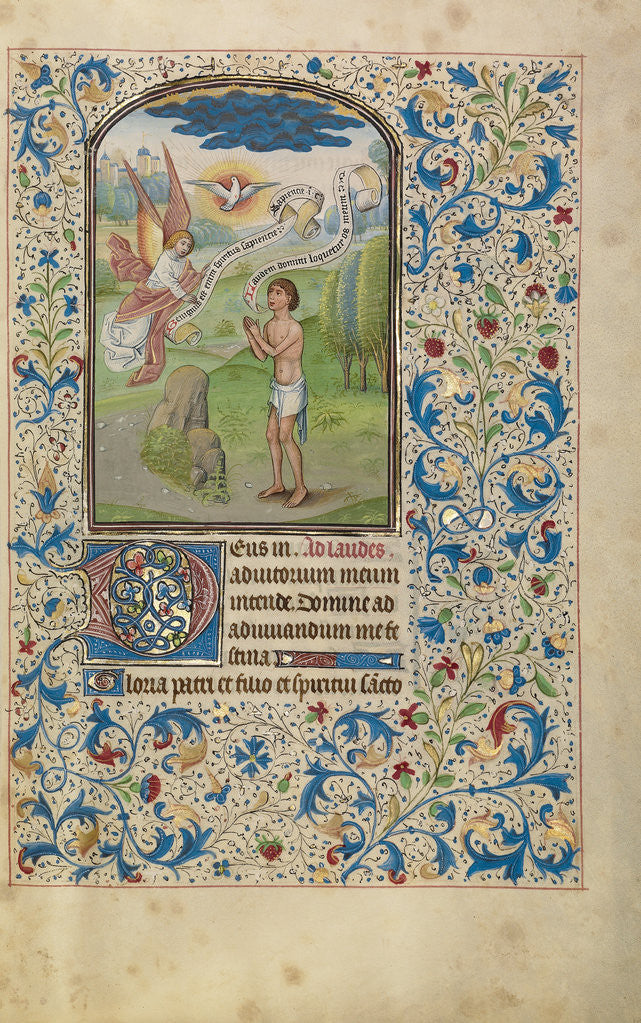 Sapiencie
Laudem domini loquetur os meum
est enim spiritus sapiencie
Eus in. Ad laudes.
adiutorium meum
intende. Domine ad
adiuuandum me fe
stina
Gloria patri et filio et spiritui sãcto